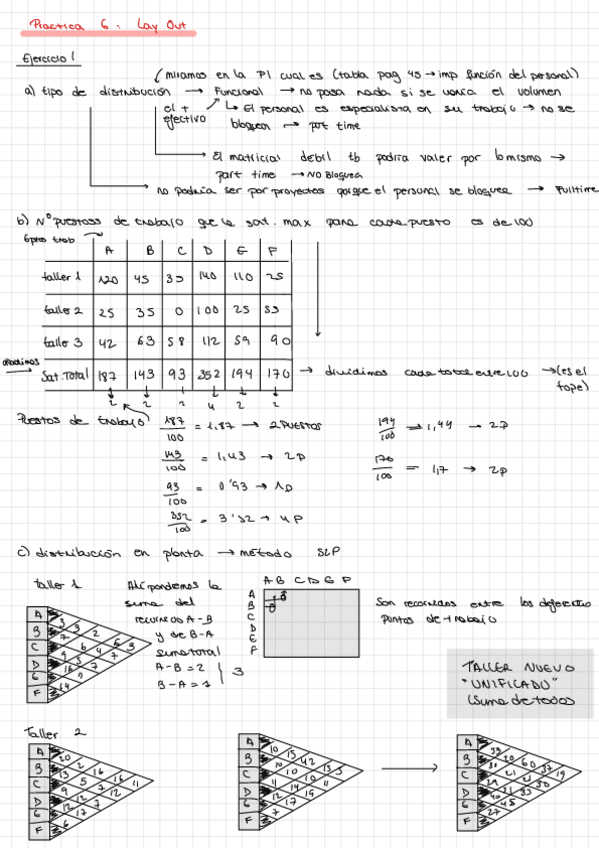 Practica 6: Lay Out
Ejercicio 1
(miramos en la P1 cual es (tabla pag 45 → imp función del personal)
a) tipo de distribución → Funcional → no pasa nada si se varia el volumen
el + efectivo
↳ El personal es especialista en su trabajo → no se
bloquea → part time
→ El matricial debil tb podria valer por lo mismo →
part time → NO Bloquea
no podria ser por proyectos porque el personal se bloquea → Fulltime
b) Nº puestos de trabajo que la sat. max para cada puesto es de 100
A B C D E F
taller 1 120 45 35 140 110 25
taller 2 25 35 0 100 25 55
taller 3 42 63 58 112 59 90
añadimos → Sat. Total 187 143 93 352 194 170 → dividimos cada total entre 100 → (es el
tope)
2 2 2 4 2 2
Puestos de trabajo
187/100 = 1,87 → 2 Puestos
194/100 = 1,94 → 2P
143/100 = 1,43 → 2P
170/100 = 1,7 → 2P
93/100 = 0'93 → 1P
352/100 = 3'52 → 4P
c) distribución en planta → metodo SLP
taller 1
Ahi pondemos la
suma del
recorrido A-B
y de B-A
suma total
A-B = 2
B-A = 1
3
A B C D E F
A
B
C
D
E
F
Son recorridos entre los diferentes
puntos de trabajo
A
B
C
D
E
F
TALLER NUEVO
"UNIFICADO"
(suma de todos
Taller 2
A
B
C
D
E
F
A
B
C
D
E
F
→
A
B
C
D
E
F